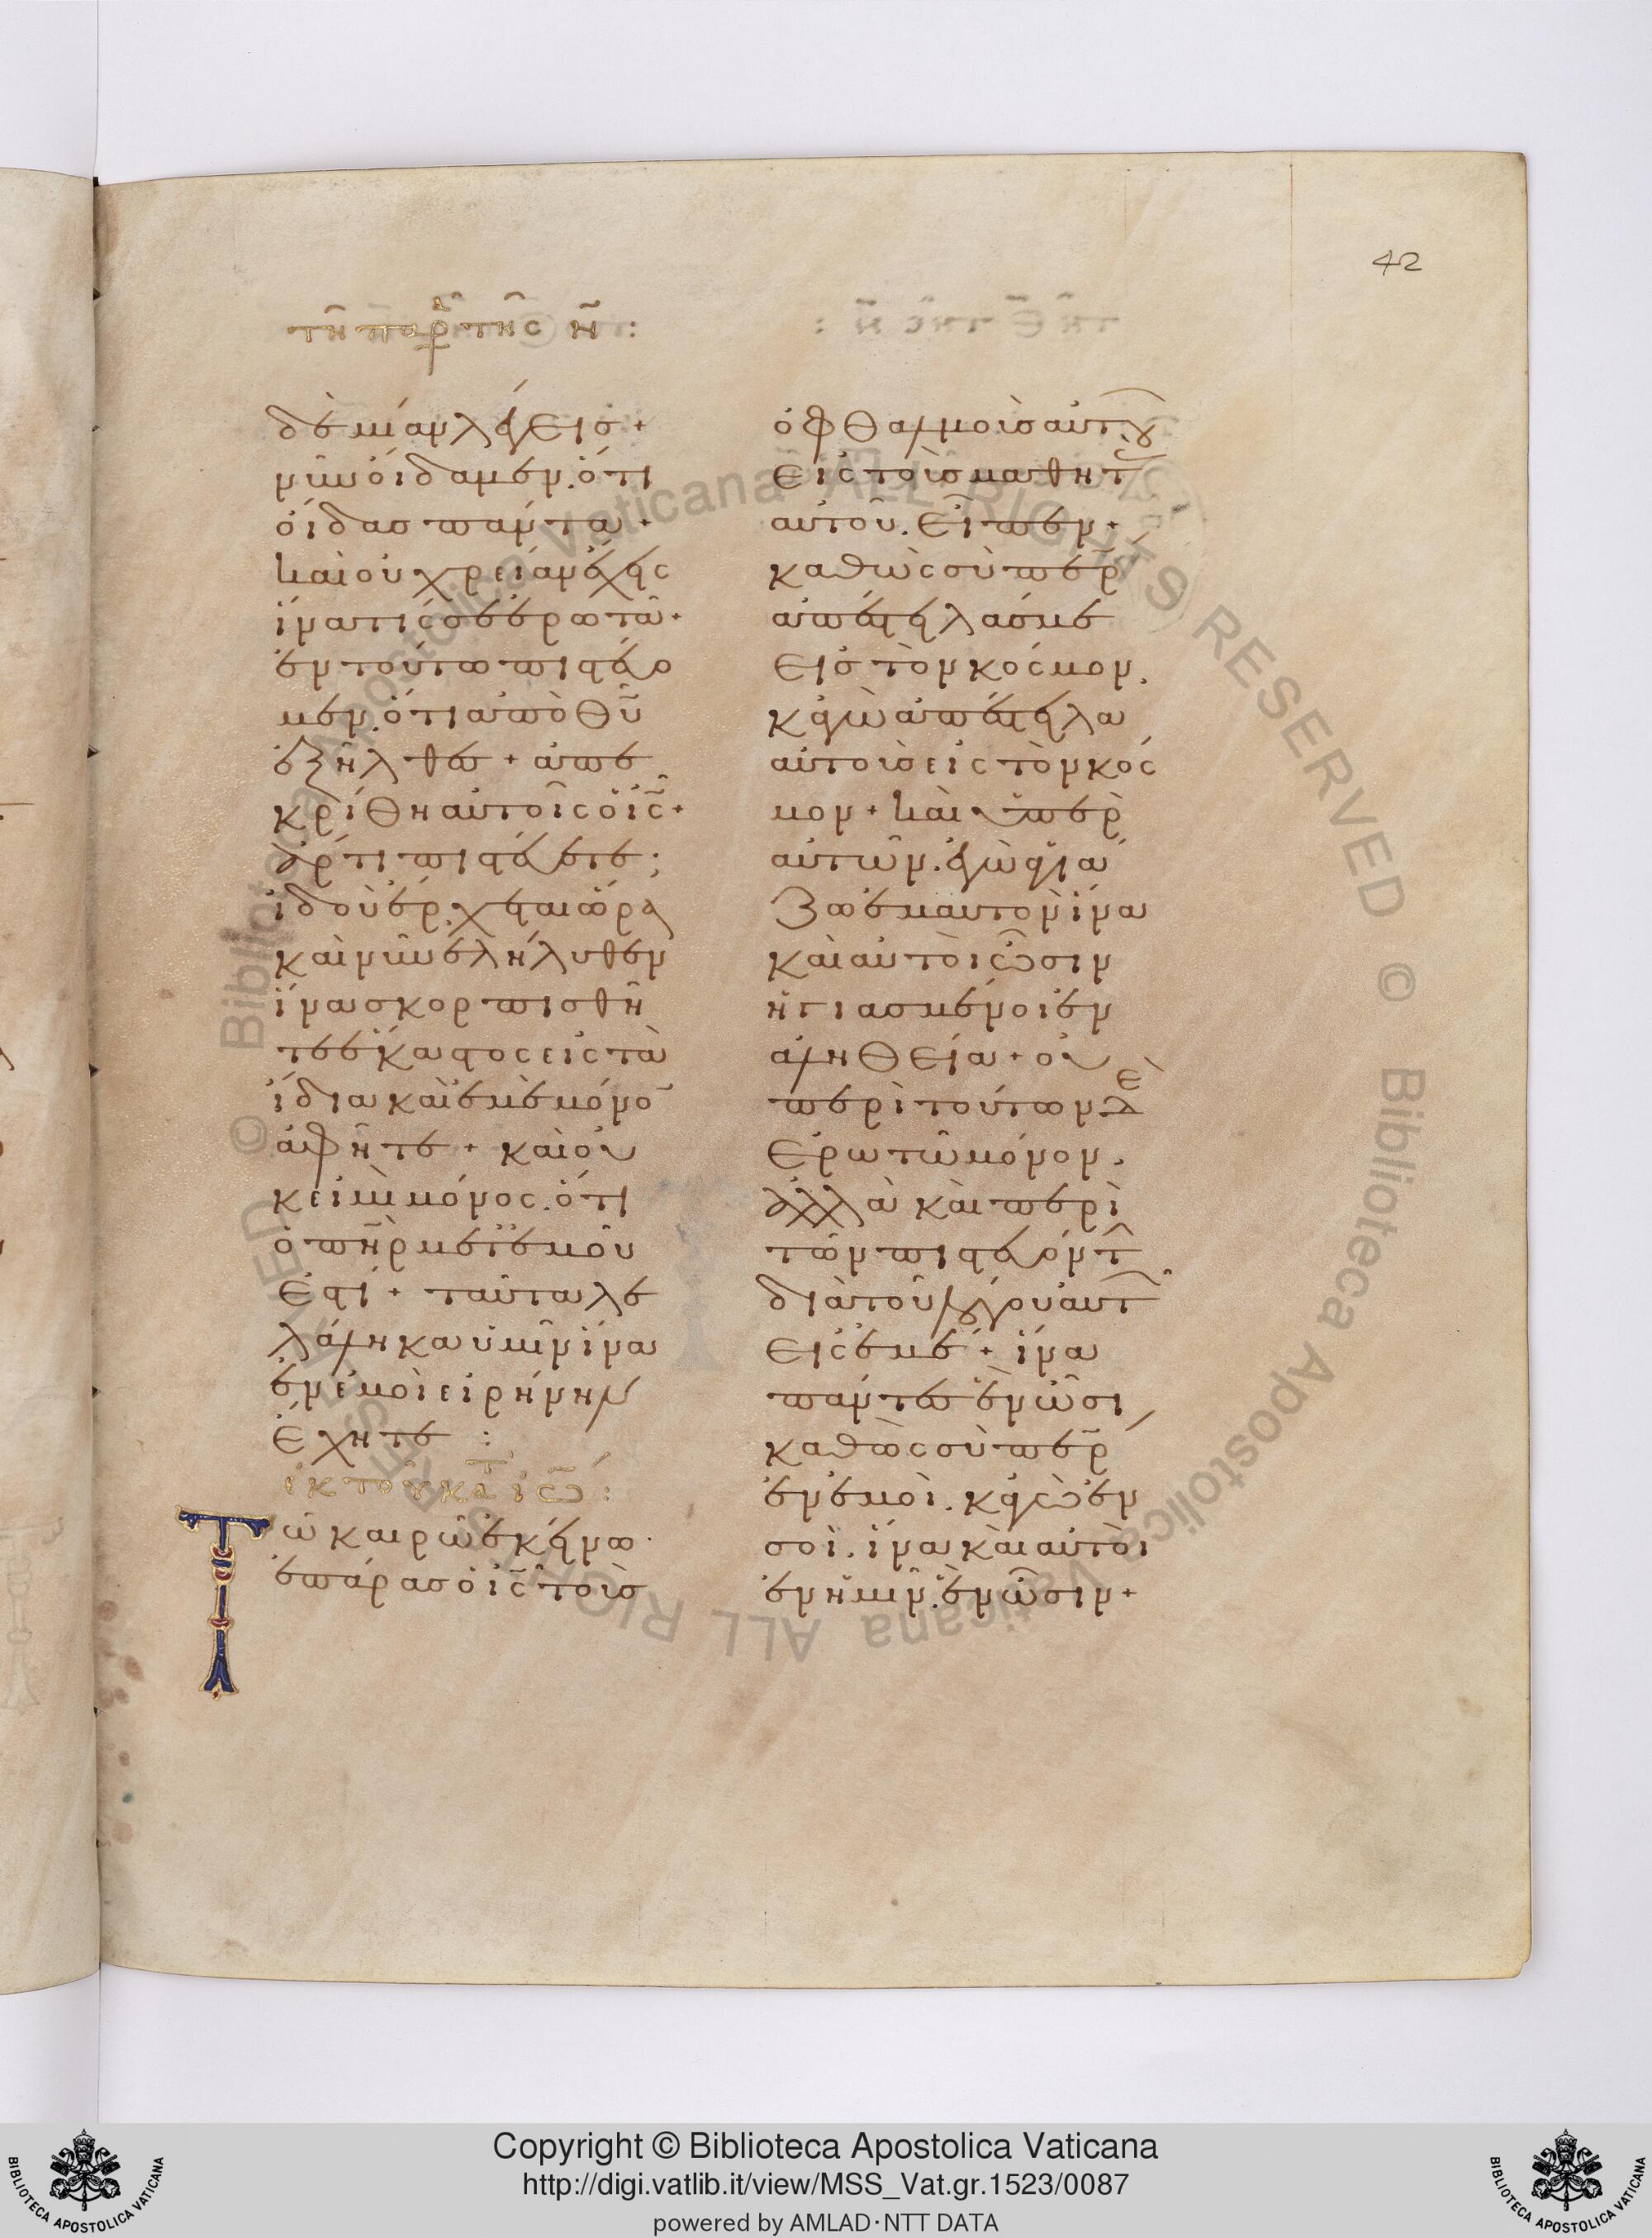 42
τῆ παρ τῆς η̃ :
δεμίαν λέγεις +
νῦν οἴδαμεν. ὅτι
οἶδας πάντα +
καὶ οὐ χρείαν ἔχεις
ἵνα τίς σε ἐρωτᾶ +
ἐν τούτω πιστεύο
μεν. ὅτι ἀπὸ θῦ
ἐξῆλθες + ἀπε
κρίθη αὐτοῖς ὁ ις +
ἄρτι πιστεύετε ;
ἰδοὺ ἔρχεται ὥρα
καὶ νῦν ἐλήλυθεν
ἵνα σκορπισθῆ
τε ἕκαστος εἰς τὰ
ἴδια καὶ ἐμὲ μόνο
ἀφῆτε + καὶ οὐ
κ εἰμὶ μόνος. ὅτι
ὁ πηρ μετ ἐμοῦ
ἐστί + ταῦτα λε
λάληκα ὑμῖν ἵνα
ἐν ἐμοὶ εἰρήνην
ἔχητε :
ἐκ τοῦ κατ ιω :
Τῶ καιρῶ ἐκείνω.
ἐπάρας ὁ ις τοὺς
ὀφθαλμοὺς αὐτοῦ
εἰς τοὺς μαθητ
αὐτοῦ. εἶπεν +
καθὼς σὺ περ
ἀπέστειλάς με
εἰς τὸν κόσμον.
κἀγὼ ἀπέστειλα
αὐτοὺς εἰς τὸν κόσ
μον + καὶ ὑπὲρ
αὐτῶν. ἐγὼ ἁγιά
ζω ἐμαυτὸν ἵνα
καὶ αὐτοὶ ὦσιν
ἡγιασμένοι ἐν
ἀληθεία + οὐ
περὶ τούτων δὲ
ἐρωτῶ μόνον.
ἀλλὰ καὶ περὶ
τῶν πιστευόντ
διὰ τοῦ λόγου αὐτ
εἰς ἐμέ + ἵνα
πάντες ἓν ὦσι
καθὼς σὺ περ
ἐν ἐμοὶ. κἀγὼ ἐν
σοὶ. ἵνα καὶ αὐτοὶ
ἐν ἡμῖν. ἓν ὦσιν +
© Biblioteca Apostolica Vaticana ALL RIGHTS RESERVED
© Biblioteca Apostolica Vaticana ALL RIGHTS RESERVED
Copyright © Biblioteca Apostolica Vaticana
http://digi.vatlib.it/view/MSS_Vat.gr.1523/0087
powered by AMLAD·NTT DATA
BIBLIOTECA APOSTOLICA VATICANA
BIBLIOTECA APOSTOLICA VATICANA